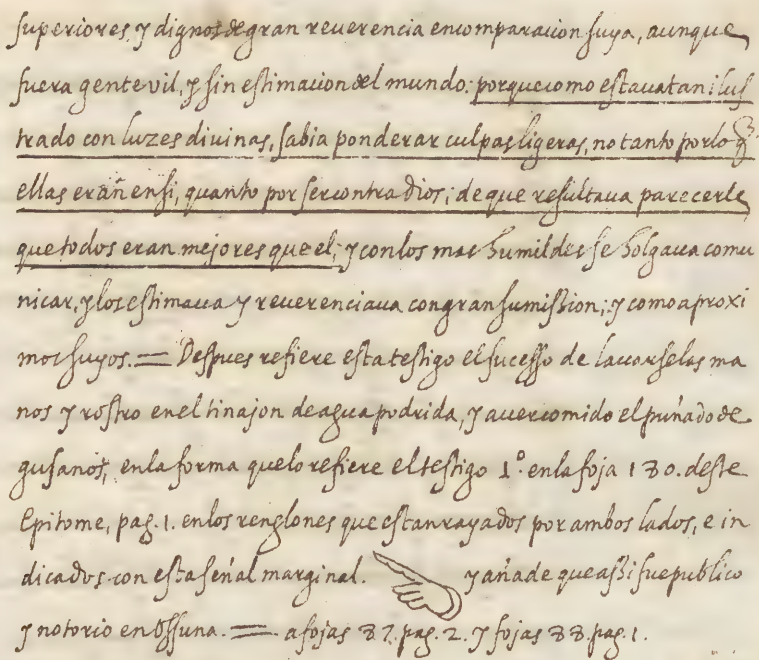 superiores, y dignos de gran reuerencia en comparacion suya, aunque
fuera gente vil, y sin estimacion del mundo: porque como estaua tan ilus
trado con luzes diuinas, sabia ponderar culpas ligeras, no tanto por lo q̃.
ellas eran en si, quanto por ser contra Dios; de que resultaua parecerle
que todos eran mejores que el; y con los mas humildes se holgaua comu
nicar, y los estimaua y reuerenciaua con gran sumission; y como a proxi
mos suyos. = Despues refiere esta testigo el sucesso de lauarse las ma
nos y rostro en el tinajon de agua podrida, y auer comido el puñado de
gusanos, en la forma que lo refiere el testigo 1º. en la foja 180. deste
Epitome, pag. 1. en los renglones que estan rayados por ambos lados, e in
dicados con esta señal marginal. y añade que assi fue publico
y notorio en Ossuna. = a fojas 87. pag. 2. y fojas 88. pag. 1.